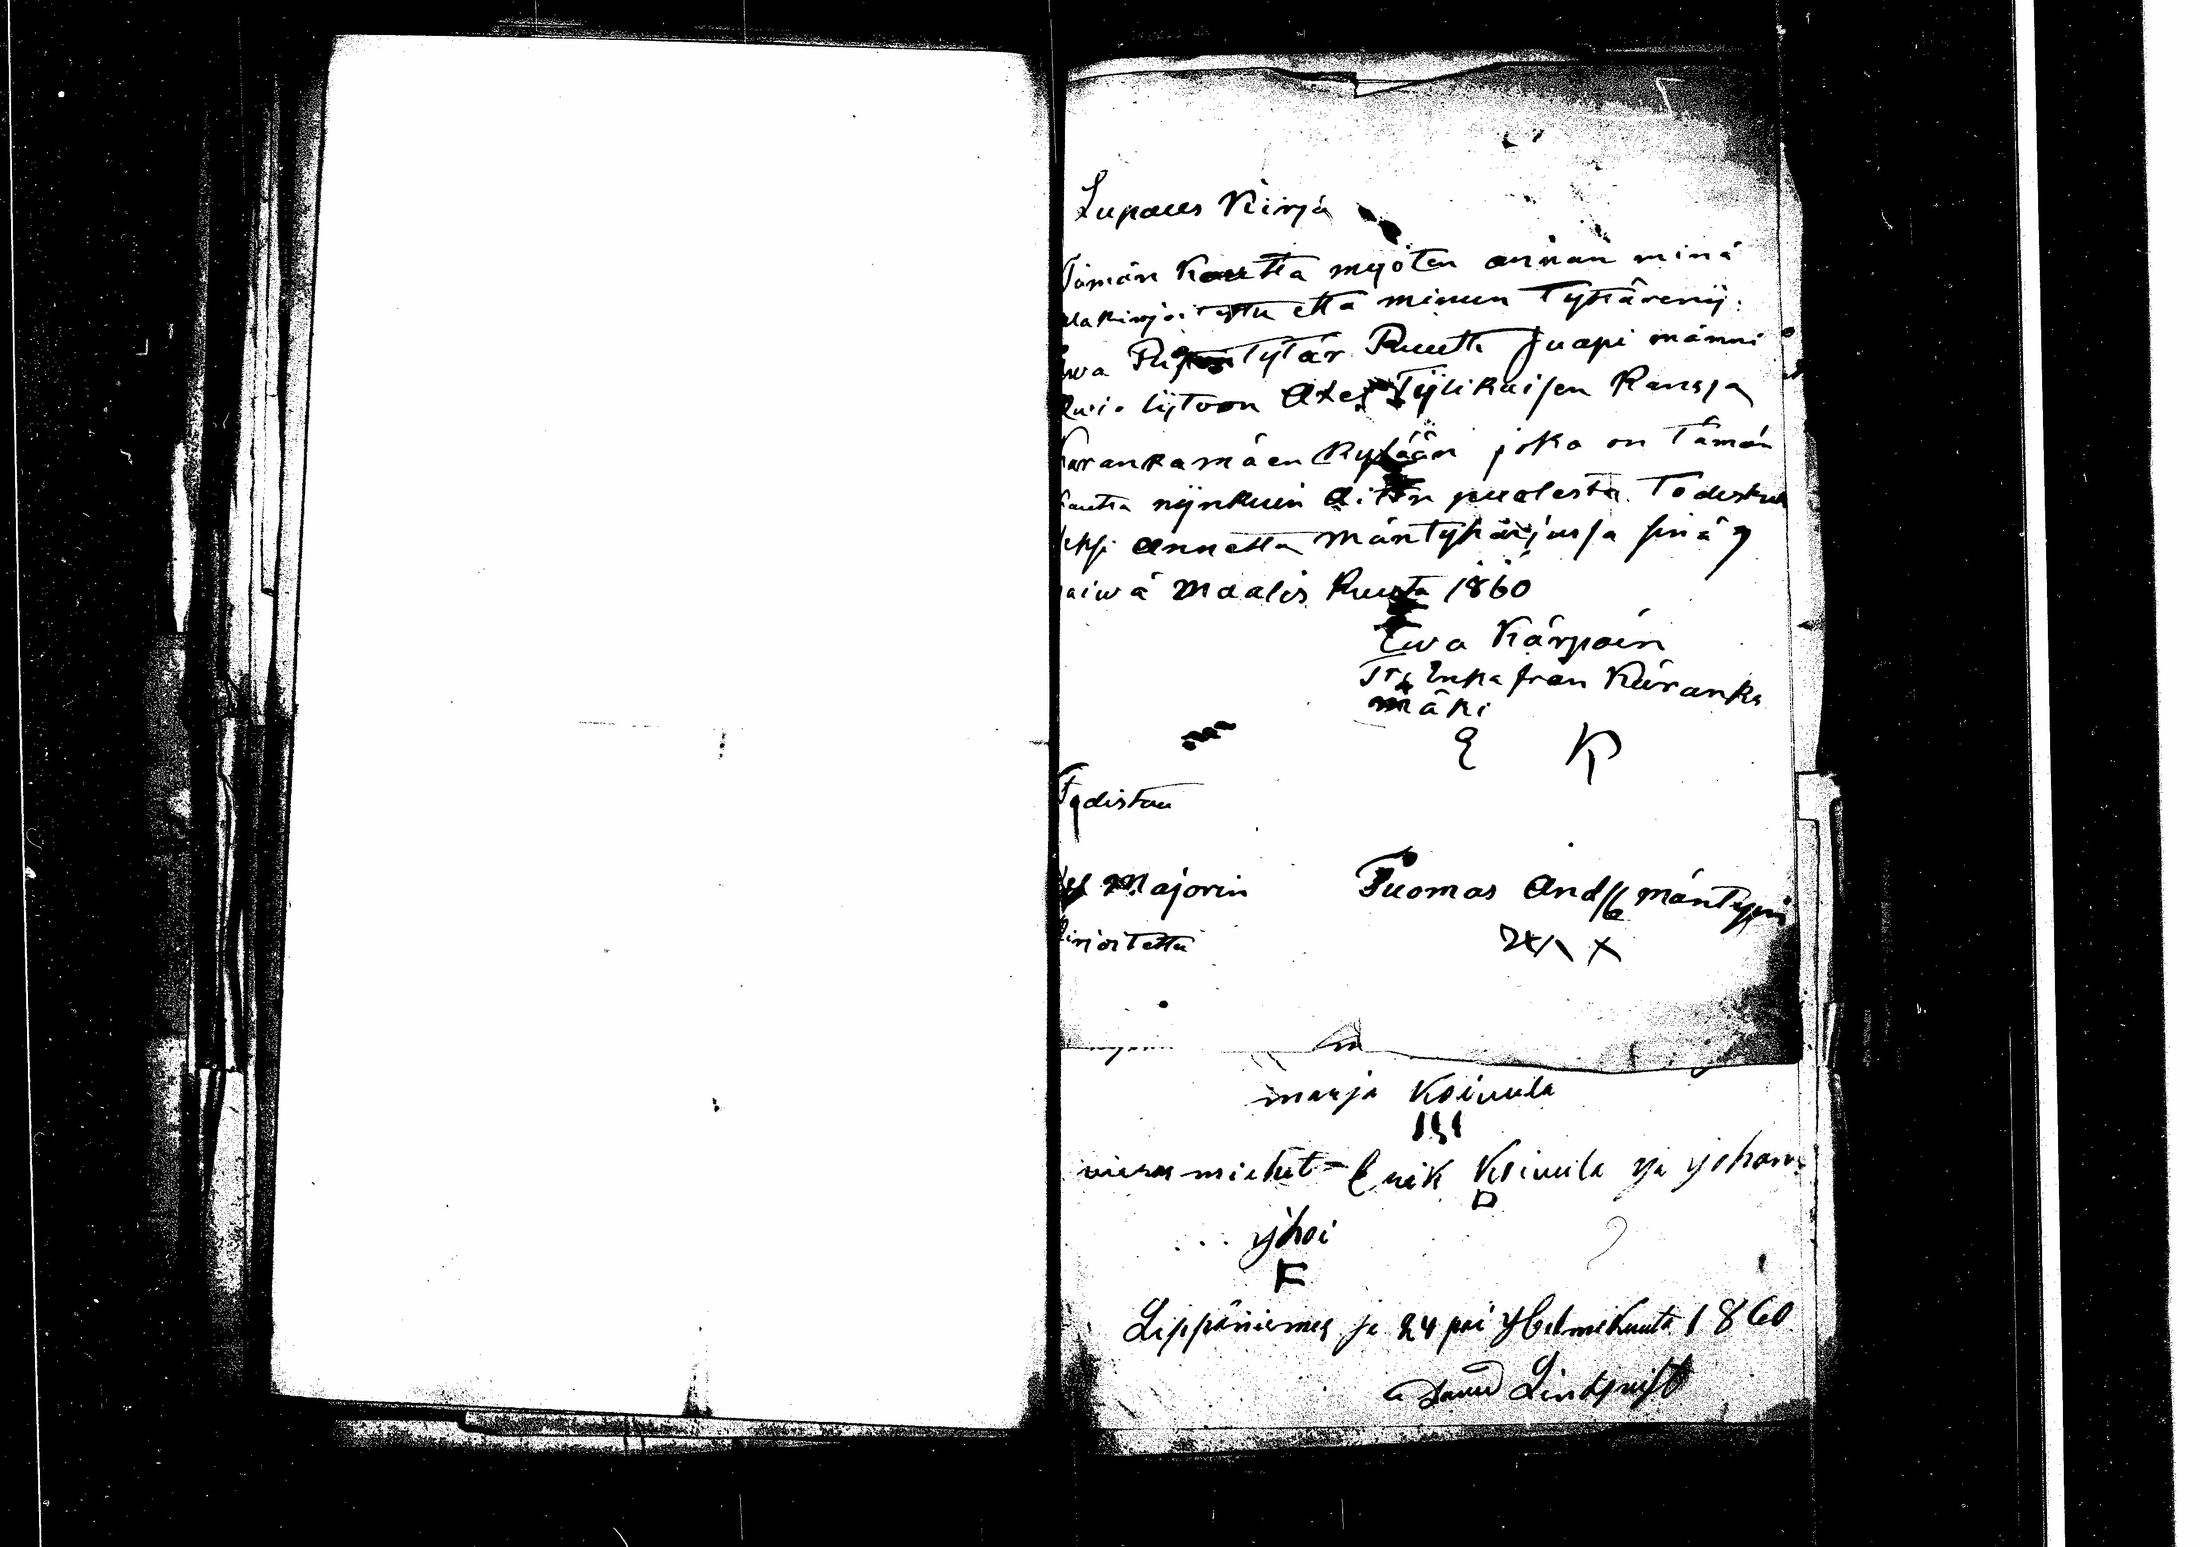 Lupaus Kirja
Tämän Kautta myöten annan minä
allakirjoitettu että minun Tyttäreni
Ewa Tytär Ruuth saapi männä
awio lijtoon Axel Tylikaisen Kanssa
Karankamäen Kylään joka on Tämän
Kautta nijnkuin Äitin puolesta Todistu
xexsi annettu Mäntyharjussa sinä 7
päiwä Maalis Kuuta 1860
Ewa Kärpäin
Enka från Karanka
mäki
E K
Todistaa
Majorin Tuomas And Mäntynen
Kirjoitettu X
marja Koivula
vieras miehet = Erik Koivula ja johan
yhoi
Leppäniemes ja 24 päi Helmekuuta 1860
Lindqvist